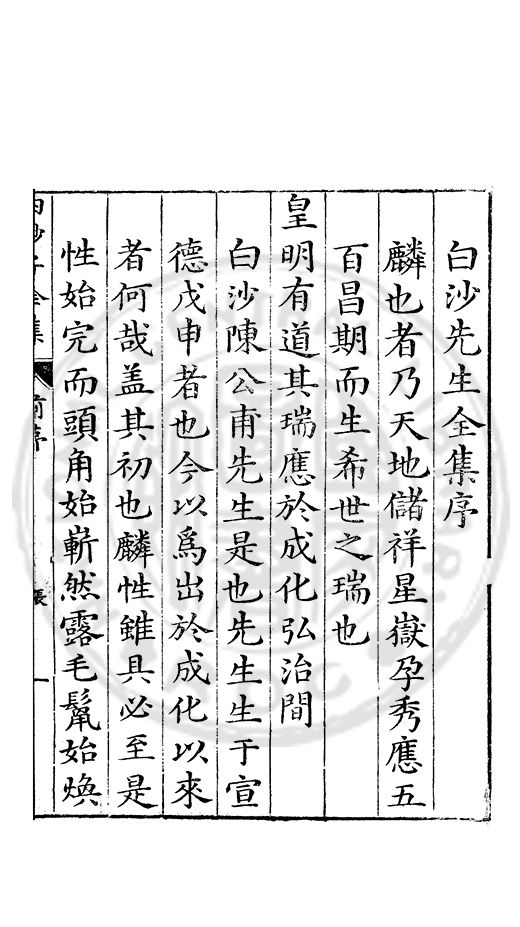 白沙先生全集序
麟也者乃天地儲祥星嶽孕秀應五
百昌期而生希世之瑞也
皇明有道其瑞應於成化弘治間
白沙陳公甫先生是也先生生于宣
德戊申者也今以爲出於成化以來
者何哉盖其初也麟性雖具必至是
性始完而頭角始嶄然露毛鬣始煥
白沙子全集 前序 一